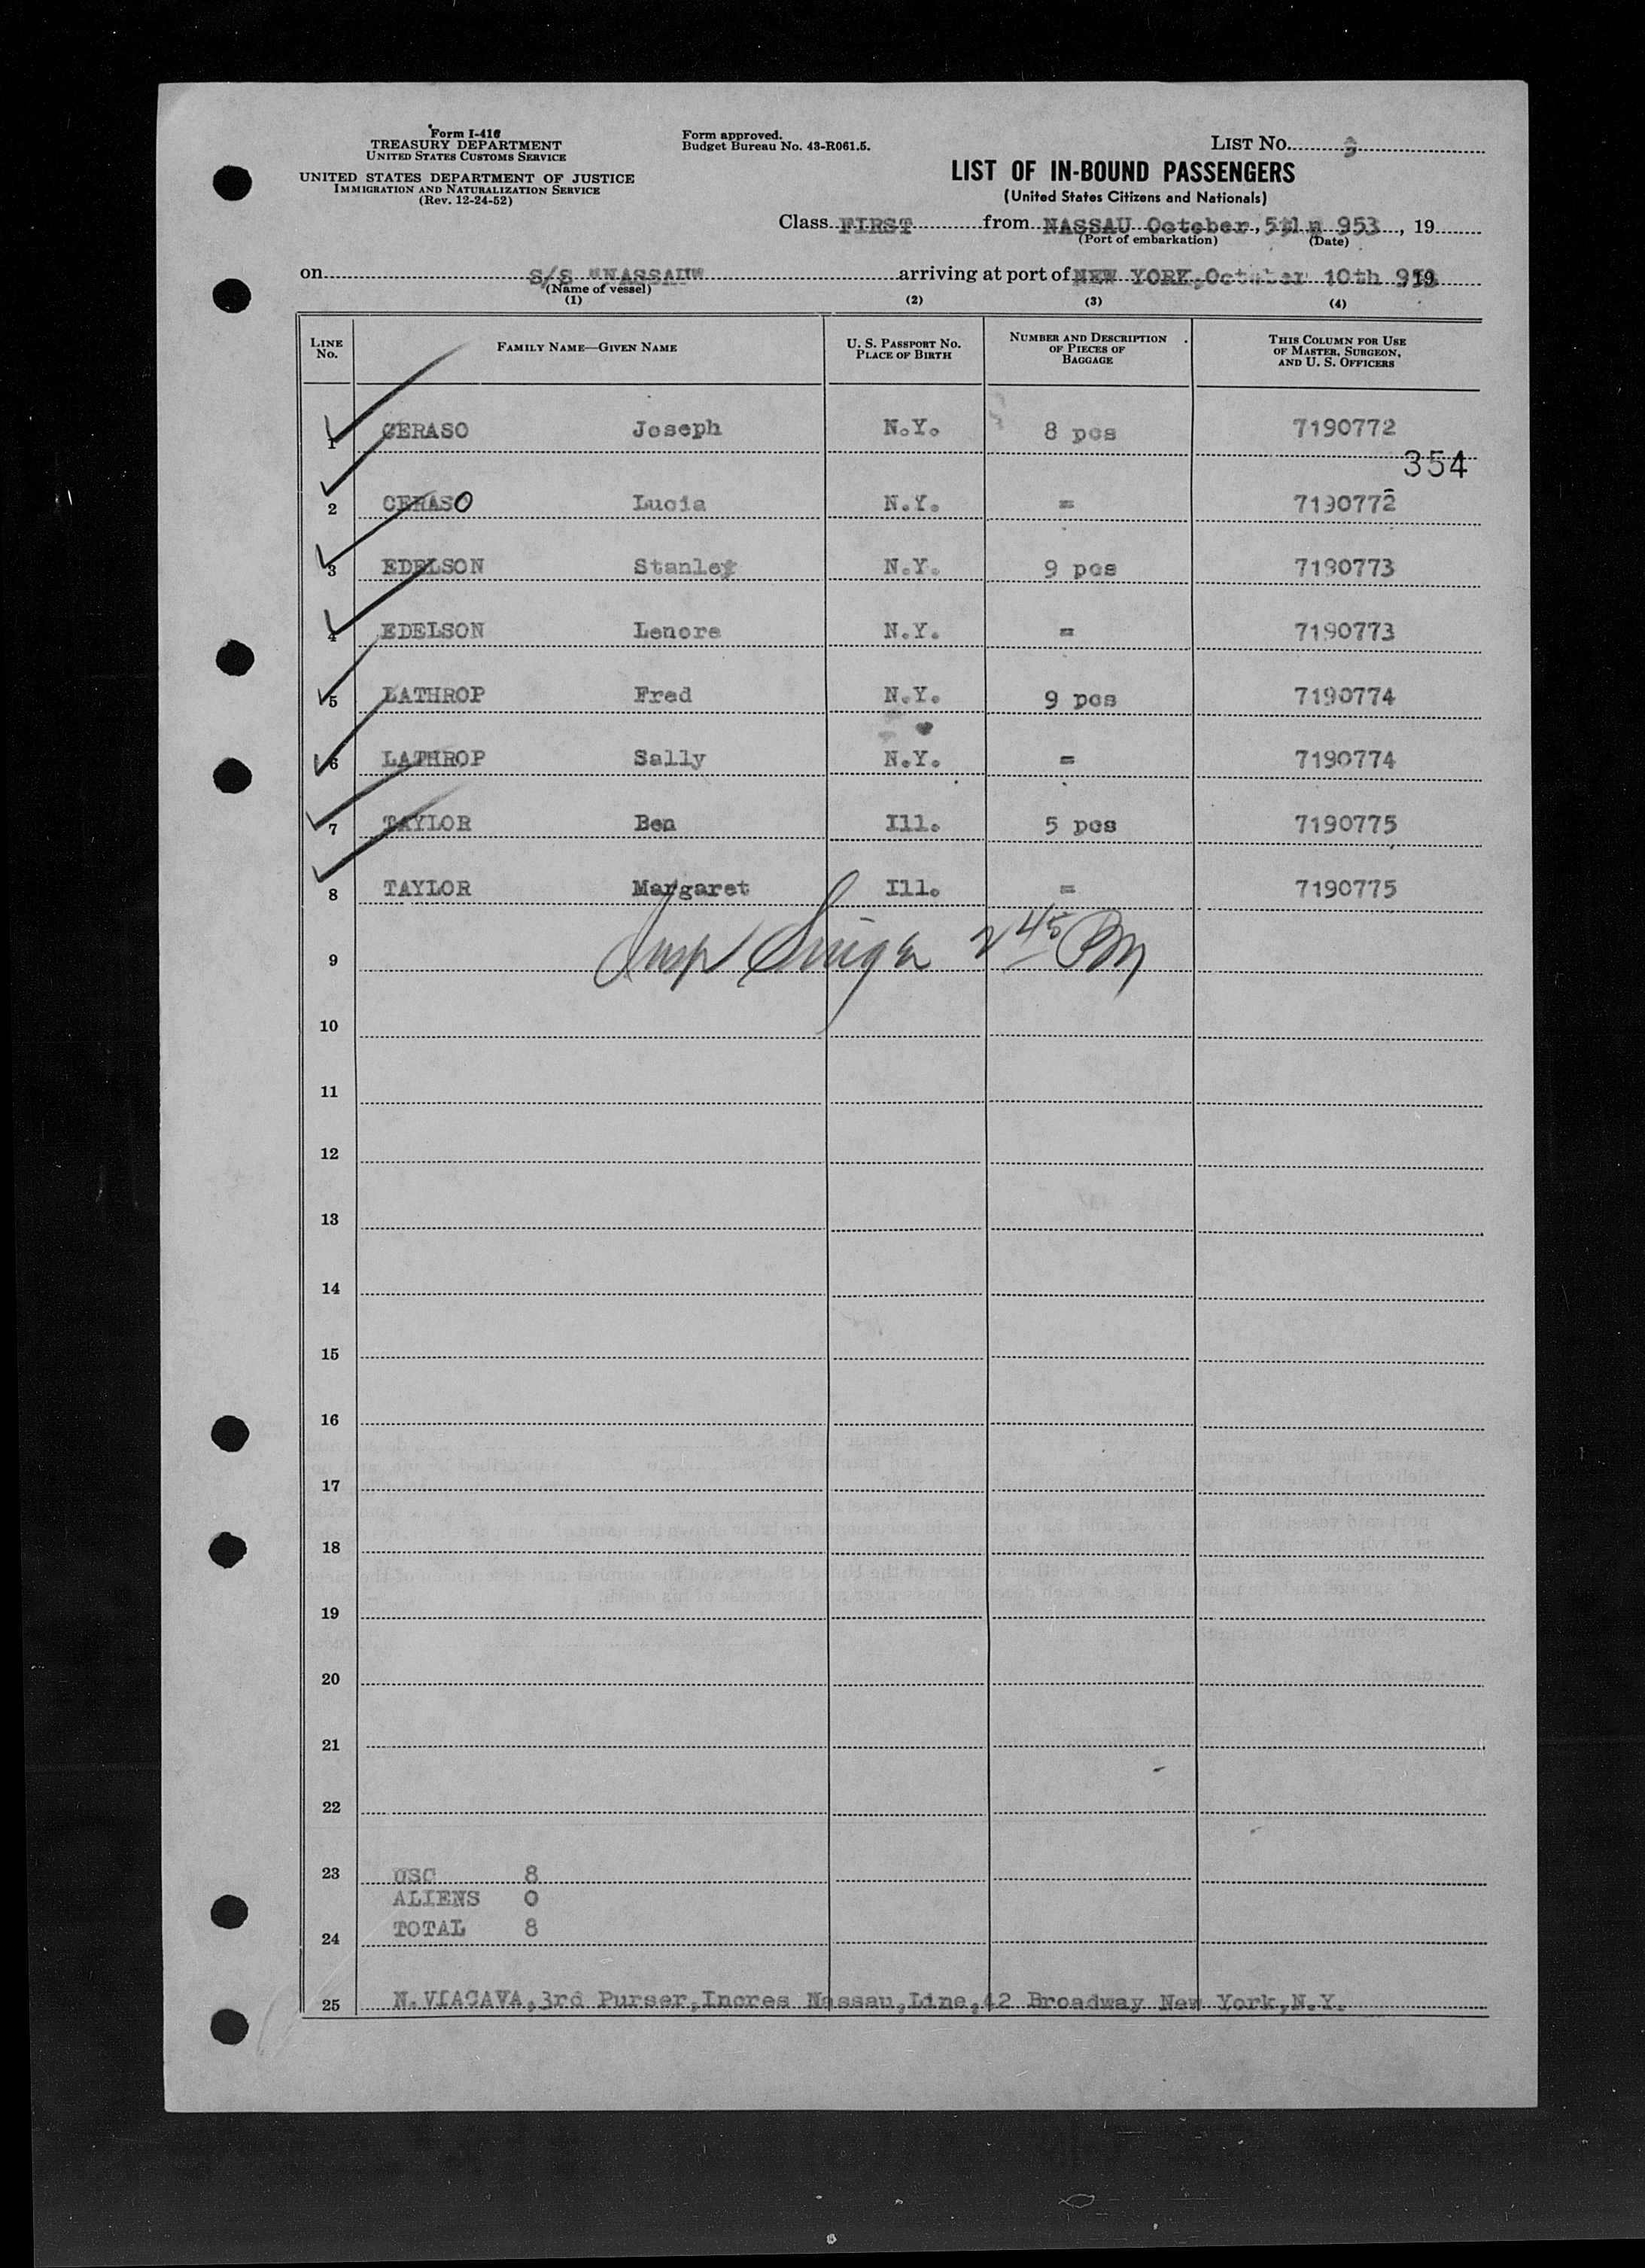 Form I-416
TREASURY DEPARTMENT
UNITED STATES CUSTOMS SERVICE
UNITED STATES DEPARTMENT OF JUSTICE
IMMIGRATION AND NATURALIZATION SERVICE
(Rev. 12-24-52)
Form approved.
Budget Bureau No. 43-R061.5.
LIST NO.
LIST OF IN-BOUND PASSENGERS
(United States Citizens and Nationals)
Class FIRST from NASSAU October, 953, 19
(Port of embarkation) (Date)
on S/S "NASSAU" arriving at port of NEW YORK, October 10th
(Name of vessel)
(1) (2) (3) (4)
LINE No. FAMILY NAME—GIVEN NAME U. S. PASSPORT NO. PLACE OF BIRTH NUMBER AND DESCRIPTION OF PIECES OF BAGGAGE THIS COLUMN FOR USE OF MASTER, SURGEON, AND U. S. OFFICERS
1 CERASO Joseph N.Y. 8 pcs 7190772
354
2 CERASO Lucia N.Y. = 7190772
3 EDELSON Stanley N.Y. 9 pcs 7190773
4 EDELSON Lenore N.Y. = 7190773
5 LATHROP Fred N.Y. 9 pcs 7190774
6 LATHROP Sally N.Y. = 7190774
7 TAYLOR Ben Ill. 5 pcs 7190775
8 TAYLOR Margaret Ill. = 7190775
9 Insp Singer 2 45 PM
10
11
12
13
14
15
16
17
18
19
20
21
22
23 USC 8
ALIENS 0
24 TOTAL 8
25 N. VIACAVA, 3rd Purser, Incres Nassau, Line, 42 Broadway New York, N.Y.